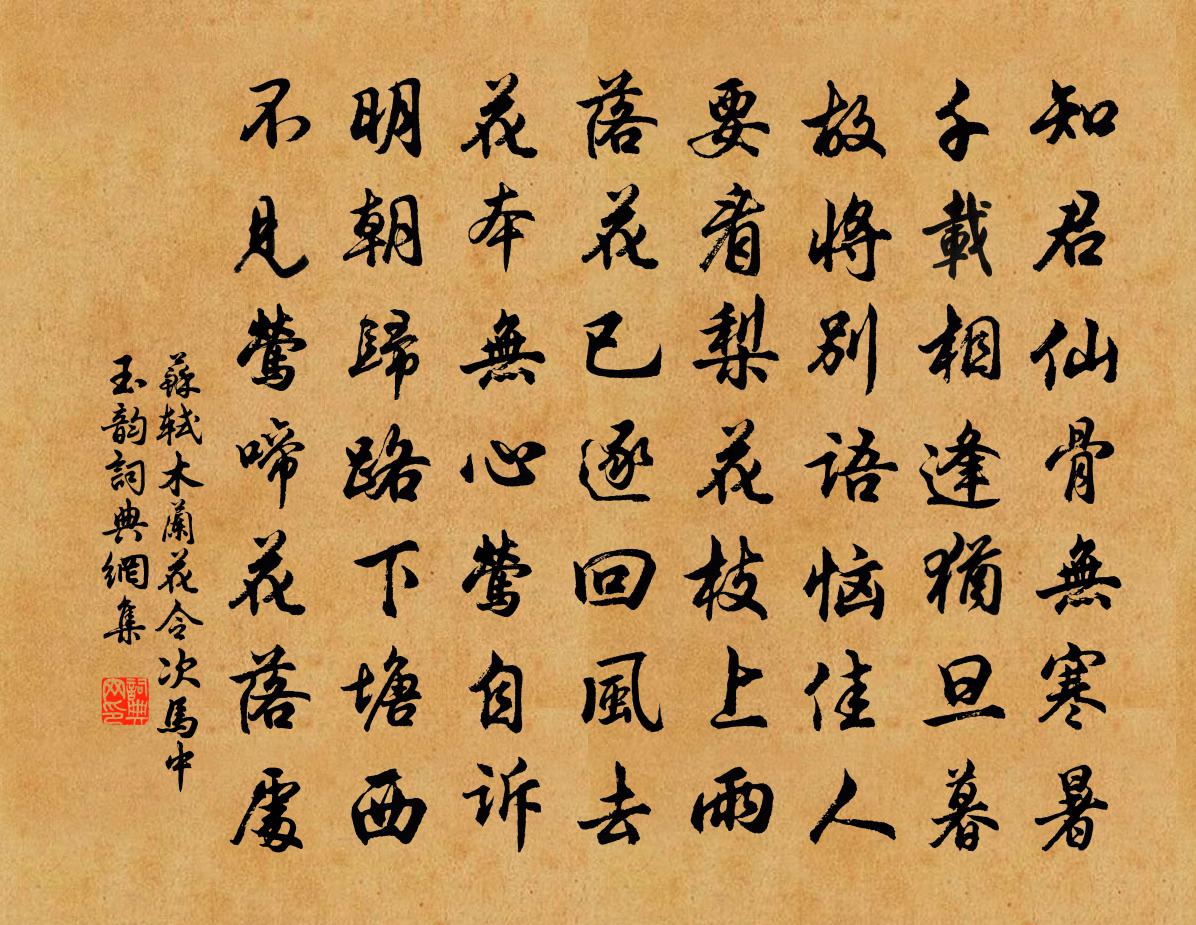 知君仙骨無寒暑
千載相逢猶旦暮
故將別語恼佳人
要看梨花枝上雨
落花已逐回風去
花本無心鶯自訴
明朝歸路下塘西
不見鶯啼花落處
蘇轼木蘭花令次馬中
玉韵詞典網集
詞典
网印